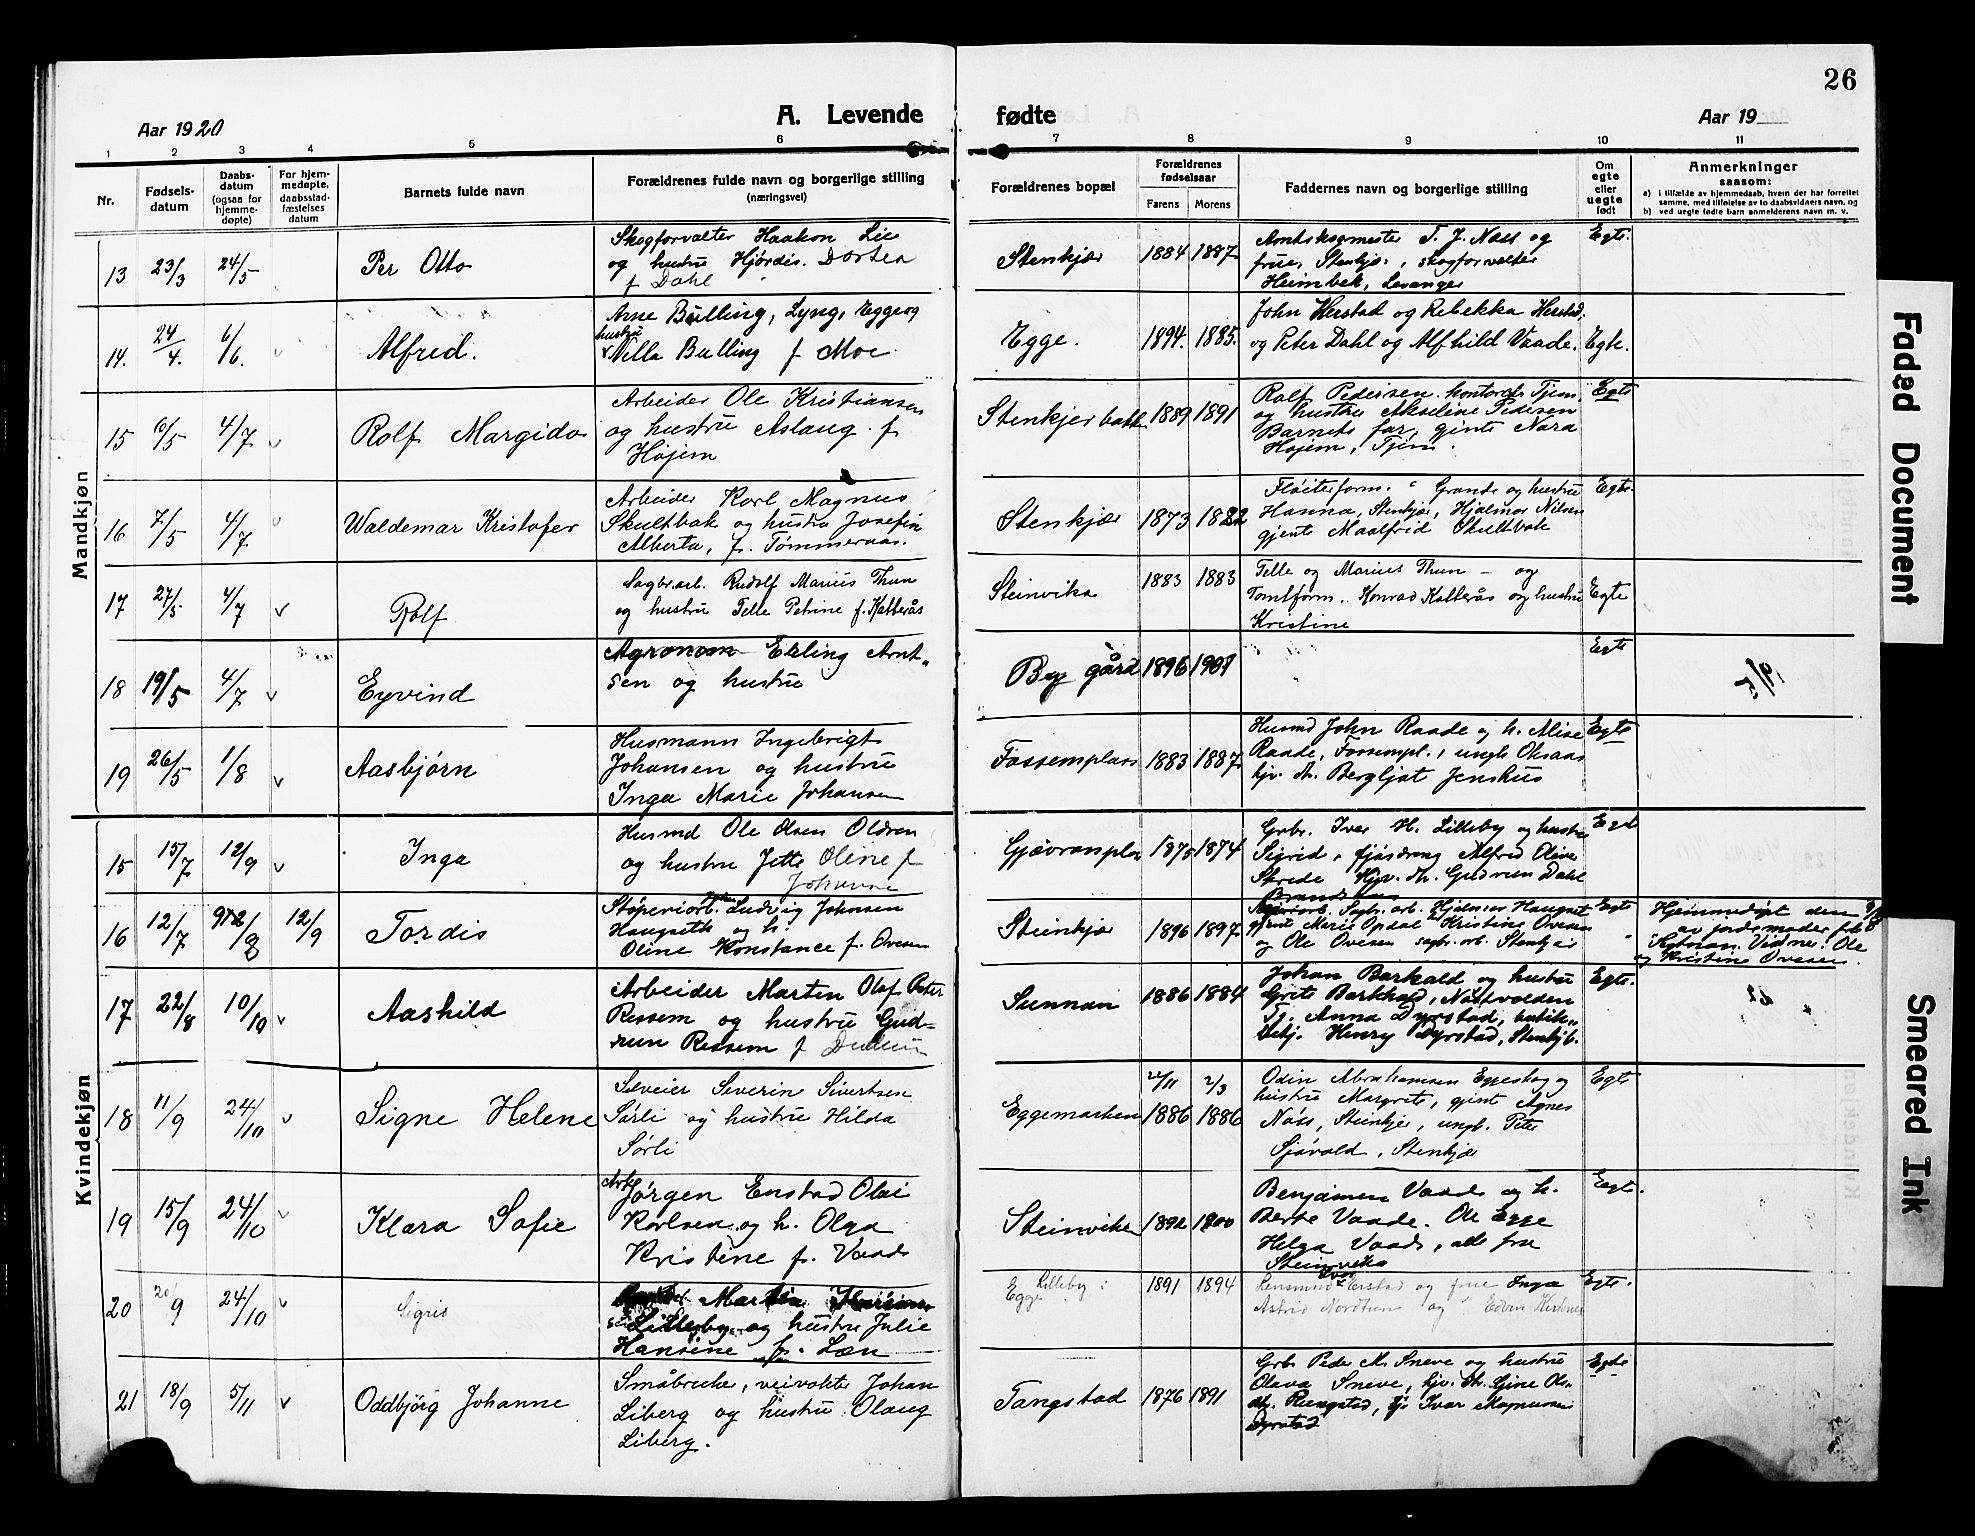 26
Aar 1920
A. Levende fødte
Aar 19
1 2 3 4 5 6 7 8 9 10 11
Nr.
Fødsels-
datum
Daabs-
datum
(ogsaa for
hjemme-
døpte)
For hjem-
medøpte,
daabsstad-
fæstelses
datum
Barnets fulde navn
Forældrenes fulde navn og borgerlige stilling
(næringsvei)
Forældrenes bopæl
Forældrenes
fødselsaar
Farens Morens
Faddernes navn og borgerlige stilling
Om
egte
eller
uegte
født
Anmerkninger
saasom:
a) i tilfælde av hjemmedaab, hvem der har forrettet
samme, med tilføielse av to daabsvidners navn, og
b) ved uegte fødte barn anmelderens navn m. v.
Mandkjøn
13 23/3 24/5 Per Otto
Skogforvalter Haakon Lie
og hustru Hjørdis Dortea
f Dahl
Stenkjær 1884 1887
Amtskasmester T. J. Næss og
frue, Stenkjær, skogforvalter
Heimbek, Levanger
Egte.
14. 24/4. 6/6. Alfred.
Arne Bulling, Lyng, Egge og
hustru
Nella Bulling f Moe
Egge. 1894. 1885.
John Herstad og Rebekka Herstad,
og Peter Dahl og Alfhild Vaade.
Egte.
15 6/5 4/7 v Rolf Margido
Arbeider Ole Kristiansen
og hustru Aslaug f
Højem
Stenkjer bakk 1889 1891
Rolf Pedersen kontorch Tjem
og hustru Akseline Pedersen
Barnets far, gjente Nara
Højem, Tjem.
Egte
16 7/5 4/7 v Waldemar Kristofer
Arbeider Karl Magnus
Skultbak og hustru Josefin
Alberta, f. Tømmeraas.
Stenkjær 1873 1882
Fløiterform. Grande og hustru
Hanna, Stenkjær, Hjalmar Nilsen
gjente Maalfrid Skultbak
Egte.
17 27/5 4/7 v Rolf
Sagbr.arb. Rudolf Marius Thun
og hustru Telle Petrine f. Kalterås
Steinvika 1883 1883
Telle og Marius Thun – og
Tomtform. Konrad Kalterås og hustru
Kristine
Egte
18 19/5 4/7 v Eyvind
Agronom Erling Arnt-
sen og hustru
By gård 1896 1901
Egte
19/5
19 26/5 1/8 v Aasbjørn
Husmann Ingebrigt
Johansen og hustru
Inga Marie Johansen
Fossemplass 1883 1887
Husmd John Raade og h. Alise
Raade, Fossempl., ungk Oksaas
hjv. dt. Bergljot Jenshus
Egte
Kvindekjøn
15 15/7 12/9 v Inga
Husmd Ole Olsen Oldren
og hustru Jette Oline f
Johanne
Gjævranplas 1875 1874
Grbr. Ivar H. Lilleby og hustru
Sigrid, fjøsdreng Alfred Oliver
Skrede Hjv. dt. Gudrun Dahl
Egte
16 12/7 12/9 Tordis
Støperiarb. Ludvig Johnsen
Haugseth og h.
Oline Konstance f. Ovesen
Steinkjær 1896 1897
Sagbr. arb. Hjalmar Haugset
gjente Marie Opdal Kristine Ovesen
og Ole Ovesen sagbr. arb. Stenkjær
Egte
Hjemmedøpt den
av jordemoder frk
Vidner: Ole
og Kristine Ovesen.
17 22/8 10/10 v Aashild
Arbeider Marten Olaf Peter
Ressem og hustru Gud-
run Ressem f
Sunnan 1886 1884
Johan Barkald og hustru
Grete Barkhald, Nøstvolden
Fr. Anna Dyrstad, butik-
betj. Henry Dyrstad, Stenkjær.
Egte.
18 11/9 24/10 v Signe Helene
Selveier Severin Sivertsen
Sørli og hustru Hilda
Sørli
Eggemarken 22/11 1886 2/3 1886
Odin Abrahamsen Eggeskog og
hustru Margrete, gjent Agnes
Næss, Steinkjer, ungk. Peter
Sjøvold, Stenkjær
Egte
19 15/9 24/10 v Klara Sofie
Arb. Jørgen Enstad Olai
Karlsen og h. Olga
Kristine f. Vaade
Steinviken 1892 1900
Benjamin Vaade og h.
Berte Vaade. Ole Egge
Helga Vaade, alle fra
Steinvika
Egte.
20 20/9 24/10 v Sigrid
Martin
Lilleby og hustru Julie
Hansine f. Læn
Lilleby
Egge 1891 1894
Lensmand Erstad og frue Inga
Astrid Nordtun og Edvin
Egte.
21 18/9 5/11 v Oddbjørg Johanne
Småbruker, veivokter Johan
Liberg og hustru Olaug
Liberg.
Tangstad 1876 1891
Grbr Peder M. Sneve og hustru
Olava Sneve, hjv. dt. Gine Ols-
dt. Rungstad, Ivar Magnussen
Dyrstad
Egte
Faded Document
Smeared Ink